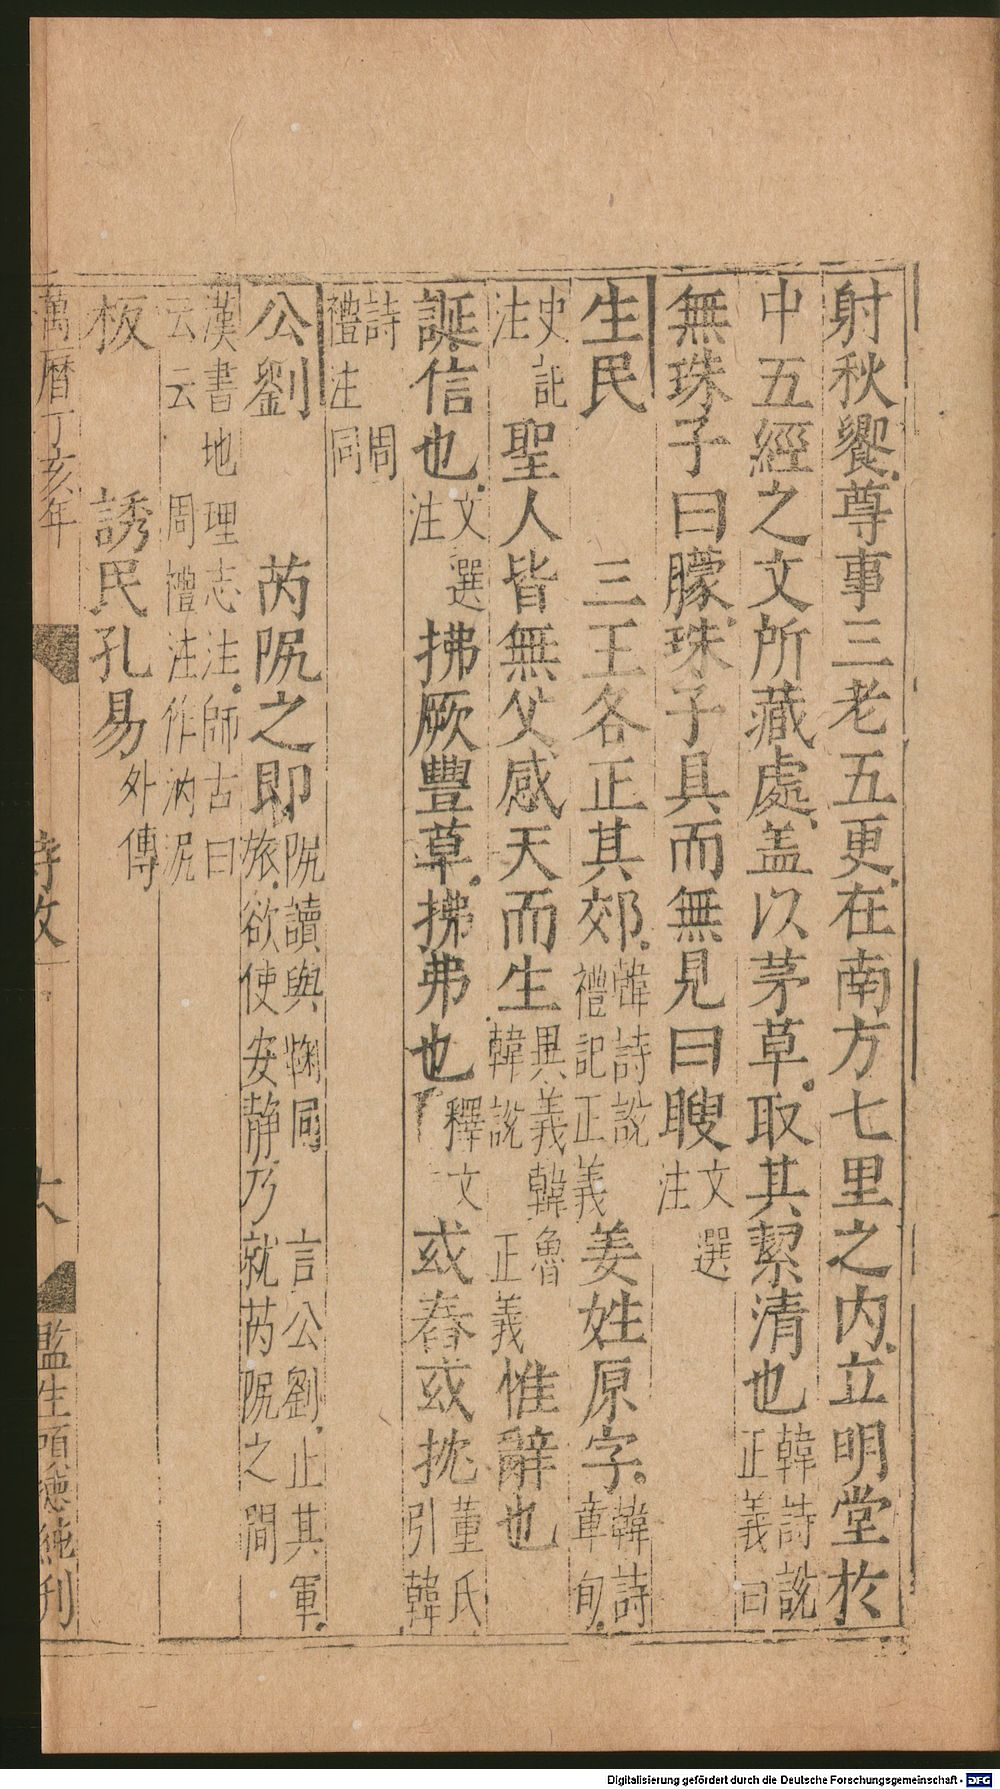 射秋饗尊事三老五更在南方七里之内立明堂於
中五經之文所藏處盖以茅草取其潔清也韓詩說正義曰
無珠子曰矇珠子具而無見曰瞍文選注
生民 三王各正其郊韓詩說禮記正義姜姓原字韓詩章句
史記注 聖人皆無父感天而生異義韓魯韓說正義惟辭也
誕信也文選注 拂厥豐草拂弗也釋文 或舂或抌董氏引韓
詩周禮注同
公劉 芮阮之即阮讀與鞫同 言公劉止其軍旅欲使安靜乃就芮阮之間
漢書地理志注師古曰云云 周禮注作汭泥
板 誘民孔易外傳
萬曆丁亥年 詩攷 十八 監生項德純刊
Digitalisierung gefördert durch die Deutsche Forschungsgemeinschaft - DFG